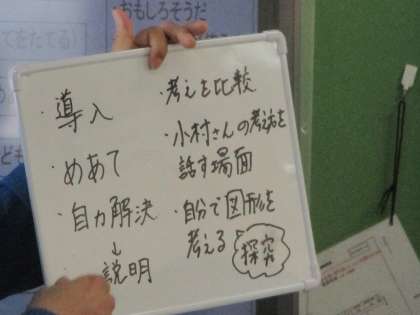 おもしろそうだ
てをたてる)
・導入
・めあて
・自力解決
↓
説明
・考えを比較
・小村さんの考え方を
話す場面
・自分で図形を
考える
探究